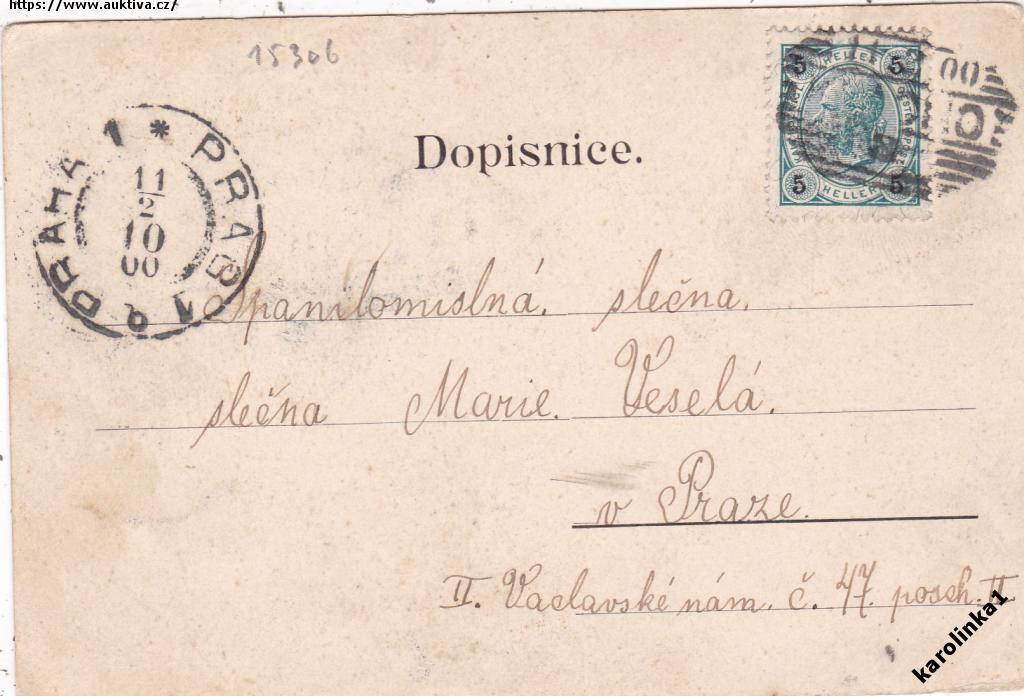 https://www.auktiva.cz/
15306
Dopisnice.
5 HELLER 5
5 HELLER 5
00
PRAG 1 * PRAHA 1
11
2
10
00
Spanilomislná slečna.
slečna Marie. Veselá.
v Praze.
II. Vaclavské nám. č. 47. posch. II
karolinka1